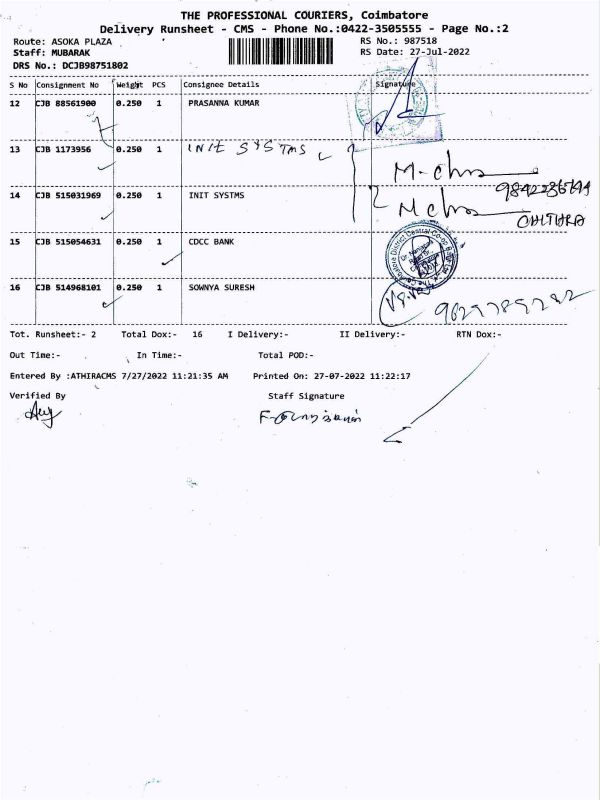 THE PROFESSIONAL COURIERS, Coimbatore
Delivery Runsheet - CMS - Phone No.:0422-3505555 - Page No.:2
Route: ASOKA PLAZA RS No.: 987518
Staff: MUBARAK RS Date: 27-Jul-2022
DRS No.: DCJB98751802
S No Consignment No Weight PCS Consignee Details Signature
12 CJB 88561900 0.250 1 PRASANNA KUMAR
13 CJB 1173956 0.250 1 INIT SYSTMS
M-chra
9842236544
14 CJB 515031969 0.250 1 INIT SYSTMS
CHITHRA
15 CJB 515054631 0.250 1 CDCC BANK
16 CJB 514968101 0.250 1 SOWNYA SURESH
9629789292
Tot. Runsheet:- 2 Total Dox:- 16 I Delivery:- II Delivery:- RTN Dox:-
Out Time:- In Time:- Total POD:-
Entered By :ATHIRACMS 7/27/2022 11:21:35 AM Printed On: 27-07-2022 11:22:17
Verified By Staff Signature